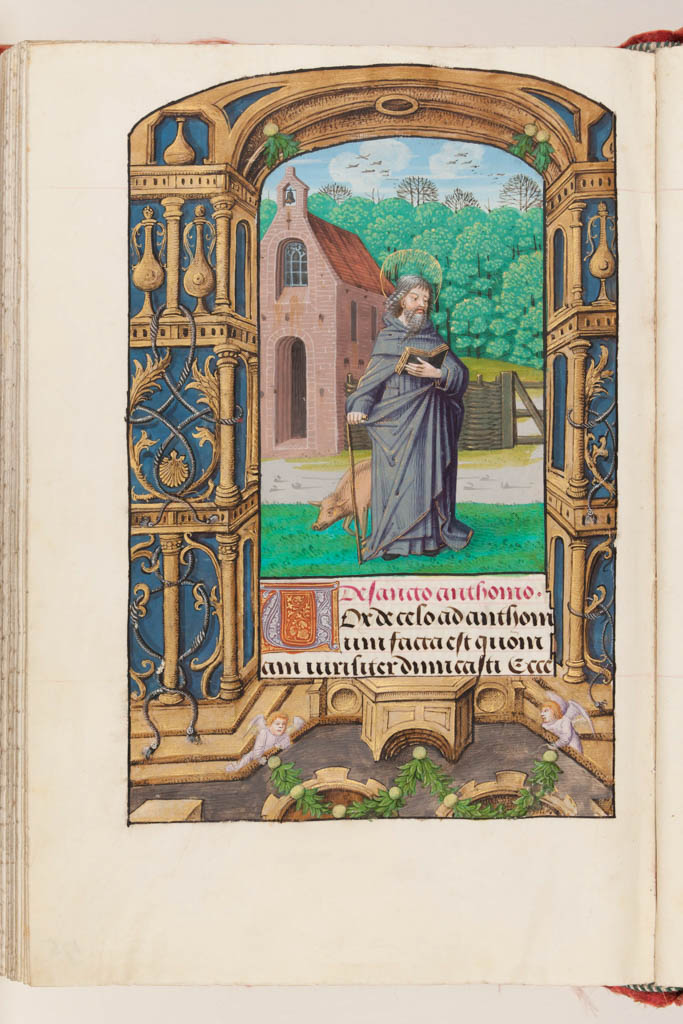 De sancto anthonio.
Vox de celo ad anthoni
um facta est quoni
am viriliter dimicasti Ecce